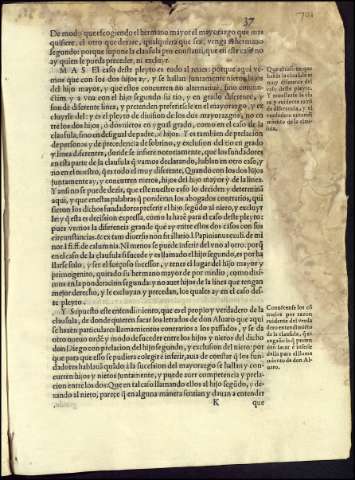 37
De modo que escogiendo el hermano mayor el mayorazgo que mas
quisiere, el otro que dexare, qualquiera que sea, venga al hermano
segundo: porque se pone la clausula por quanto, que en este caso no
ay quien le pueda preceder, ni excluyr.
MAS. El caso deste pleyto es todo al reues: porque aqui ve-
mos que con los dos hijos ay, y se hallan juntamente nietos hijos
del hijo mayor, y que estos concurren no alternatiuè, sino coniun-
ctim, y a vna con el hijo segundo su tio, y en grado diferente, y
son de diferente linea, y pretenden preferirse en el mayorazgo, y ex
cluyrse del: y es el pleyto de diuision de los dos mayorazgos, no en
tre los dos hijos, ò dos nietos en ygual grado, como en el caso de la
clausula, sino en desigual de padre, è hijos. Y es tambien de prelacion
de personas y de precedencia de sobrinos, y exclusion del tio en grado
y linea diferente, donde se infiere notoriamente, que los fundadores
en esta parte de la clausula q̃ vamos declarando, hablan en otro caso, y
no en el nuestro, q̃ es todo el muy diferente, Quando con los dos hijos
juntamente ay, y concurren nietos, hijos del hijo mayor y de la linea.
Y assi no se puede dezir, que este nuestro caso lo deciden y determinã
aqui, y que en estas palabras q̃ ponderan los abogados contrarios, qui
sieron los dichos fundadores preferir el hijo segundo al nieto, y exclu
yr
esta es decision expressa, como la haze para el caso deste pleyto:
pues vemos la diferencia grande que ay entre estos dos casos con sus
circunstancias. & ex tam diuerso non fit illatio.
ff. de calumnia. Ni menos se puede inferir del vno al otro: porq̃
en el caso de la clausula sucede y es llamado el hijo segundo, es por ha
llarse solo, y ser el supuesto sucessor, y tener el lugar del hijo mayor y
primogenito, quitado su hermano mayor de por medio; como dixi-
mos en la ponderacion segunda: y no auer hijos de la linea que tengan
mejor derecho, y le excluyan y precedan, los quales ay en el caso des-
te pleyto.
Y Supuesto este entendimiento, que es el propio y verdadero de la
clausula, de donde quieren sacar los letrados de don Aluaro que aqui
se hazen particulares llamamientos contrarios a los passados, y se da
otro nueuo ordẽ y modo de suceder entre los hijos y nietos del dicho
don Diego con prelacion del hijo segundo, y exclusion del nieto: por
que para que esso se pudiera colegir è inferir, auia de constar q̃ los fun-
dadores hablauã quãdo à la sucession del mayorazgo se hallan y con-
curren hijos y nietos juntamente, y puede auer competencia y prela-
cion entre los dos: Que en tal caso llamando ellos al hijo segũdo, y de-
xando al nieto, parece q̃ en alguna manera sentian y dauan a entender
K
que
clausula
deste pleyto.
Conuencese los cõ
trarios por razon
euidente del verda
dero entendimiẽto
de la clausula, que
engañados
den sacar è inferir
della para el llama
miento de don Al-
uaro.